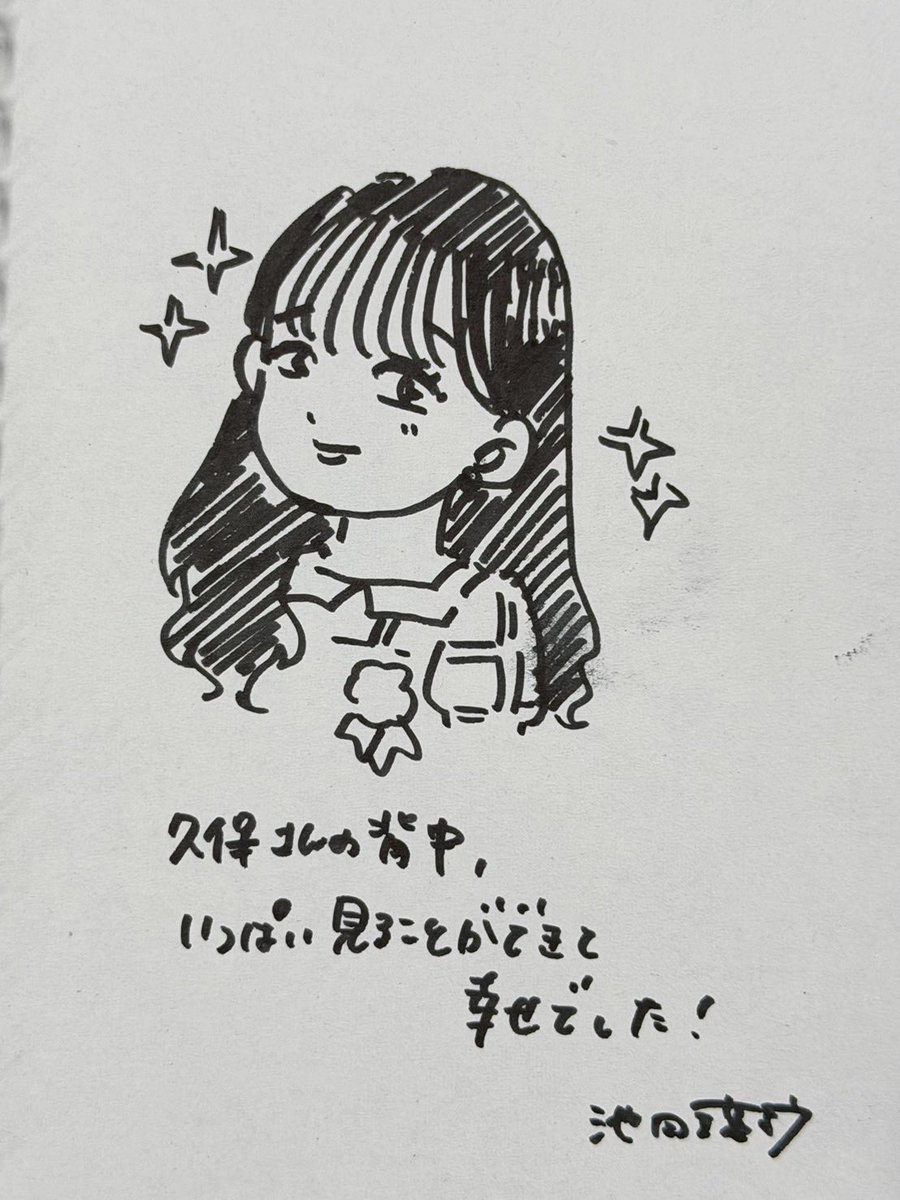 久保さんの背中、
いっぱい見ることができて
幸せでした!
池田瑛紗